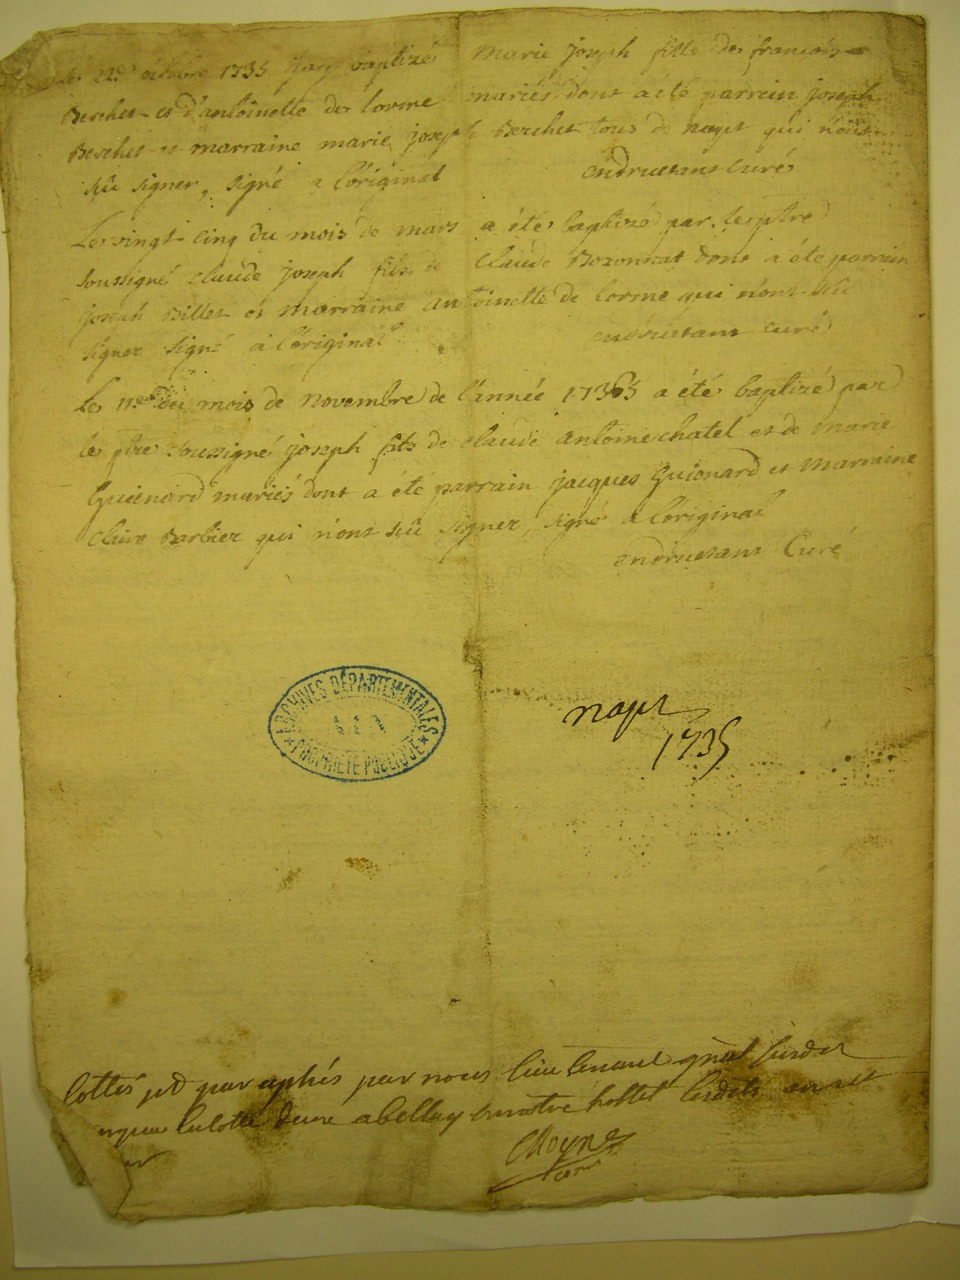 Le 22e octobre 1735 j'ay baptizé Marie joseph fille de francois
Berchet et d'antoinette de lorme mariés dont a été parrain joseph
Berchet et marraine marie joseph Berchet tous de napt qui n'ont
sçû signer, signé a l'original
endruetans curé
Le vingt-cinq du mois de mars a été baptizé par le ptre
soussigné claude joseph fils de Claude Bozonnat dont a été parrain
joseph Billet et marraine antoinette de lorme qui n'ont sçû
signer signé a l'original
endruetans curé
Le 11e du mois de Novembre de l'année 1735 a été baptizé par
le ptre soussigné joseph fils de claude antoine chatel et de Marie
Guienard mariés dont a été parrain jacques Guienard et Marraine
claire Barbier qui n'ont sçû signer, signé a l'original
endruetans Curé
ARCHIVES DÉPARTEMENTALES
AIN
PROPRIÉTÉ PUBLIQUE
napt
1735
Cottés et paraphés par nous lieutenant gñal
abelley notre hottel